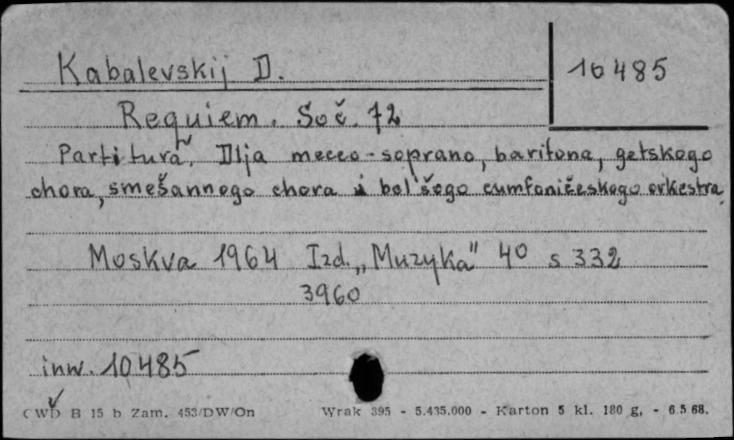 Kabalevskij D.
10485
Requiem. Soč. 72
Partitura. Dlja mecco-soprano, baritona, getskogo
chora, smešannogo chora i bol'šogo cumfoničeskogo orkestra.
Moskva 1964 Izd. „Muzyka" 40 s 332
3960
inw. 10485
CWD B 15 b Zam. 453/DW/On Wrak 395 - 5.435.000 - Karton 5 kl. 180 g, - 6.5 68.